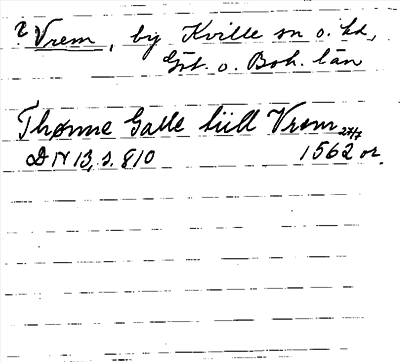 ? Vrem, by Kville sn o. hd,
Göt. o. Boh. län
Thønne Galle tiill Vrem 27/7
DN 13, s. 810 1562 or.